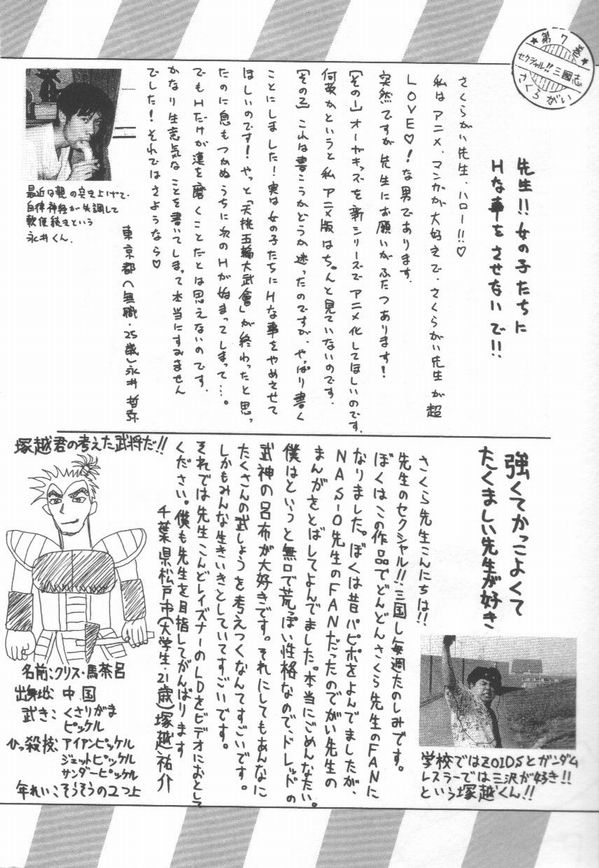 ★第7巻★
セクシャル!!三國志
さくらがい
先生!!女の子たちに
Hな事をさせないで!!
さくらがい先生、ハロー!!♡
私はアニメ、マンガが大好きで、さくらがい先生が超
LOVE♡!な男であります。
突然ですが先生にお願いがふたつあります!
【その1】オーヤキッズを新シリーズでアニメ化してほしいのです。
何故かというと私アニメ版はちゃんと見ていないのです。
【その2】これは書こうかどうか迷ったのですが、やっぱり書く
ことにしました!実は女の子たちにHな事をやめさせて
ほしいのです!やっと「天挑五輪大武會」が終わったと思っ
たのに息もつかぬうちに次のHが始まってしまって…。
でもHだけが運を磨くことだとは思えないのです。
かなり生意気なことを書いてしまって本当にすみません
でした!それではさようなら♡
東京都(無職・25歳)永井哲弥
最近は親の突き上げで、
自律神経が失調して
軟便続きという
永井くん。
強くてかっこよくて
たくましい先生が好き
さくら先生こんにちは!!
先生のセクシャル!!三国し毎週たのしみです。
ぼくはこの作品でどんどんさくら先生のFANに
なりました。ぼくは昔パピポをよんでましたが、
NAS-O先生のFANだったのでがい先生の
まんがをとばしてよんでました。本当にごめんなさい。
僕はというと無口で荒っぽい性格なので、ドレッドの
武神の呂布が大好きです。それにしてもあんなに
たくさんの武しょうを考えつくなんてすごいです。
しかもみんな生きいきとしていてすごいです。
それでは先生こんどレイズナーのLDをビデオにおとして
ください。僕も先生を目指してがんばります
千葉県松戸市(大学生・21歳)塚越祐介
学校ではZOIDSとガンダム
レスラーでは三沢が好き!!
という塚越くん!!
塚越君の考えた武将だ!!
名前:クリス・馬茶呂
出身地:中国
武き:くさりがま
ピッケル
ひっ殺校:アイアンピッケル
ジェットピッケル
サンダーピッケル
年れい:そうそうの2つ上